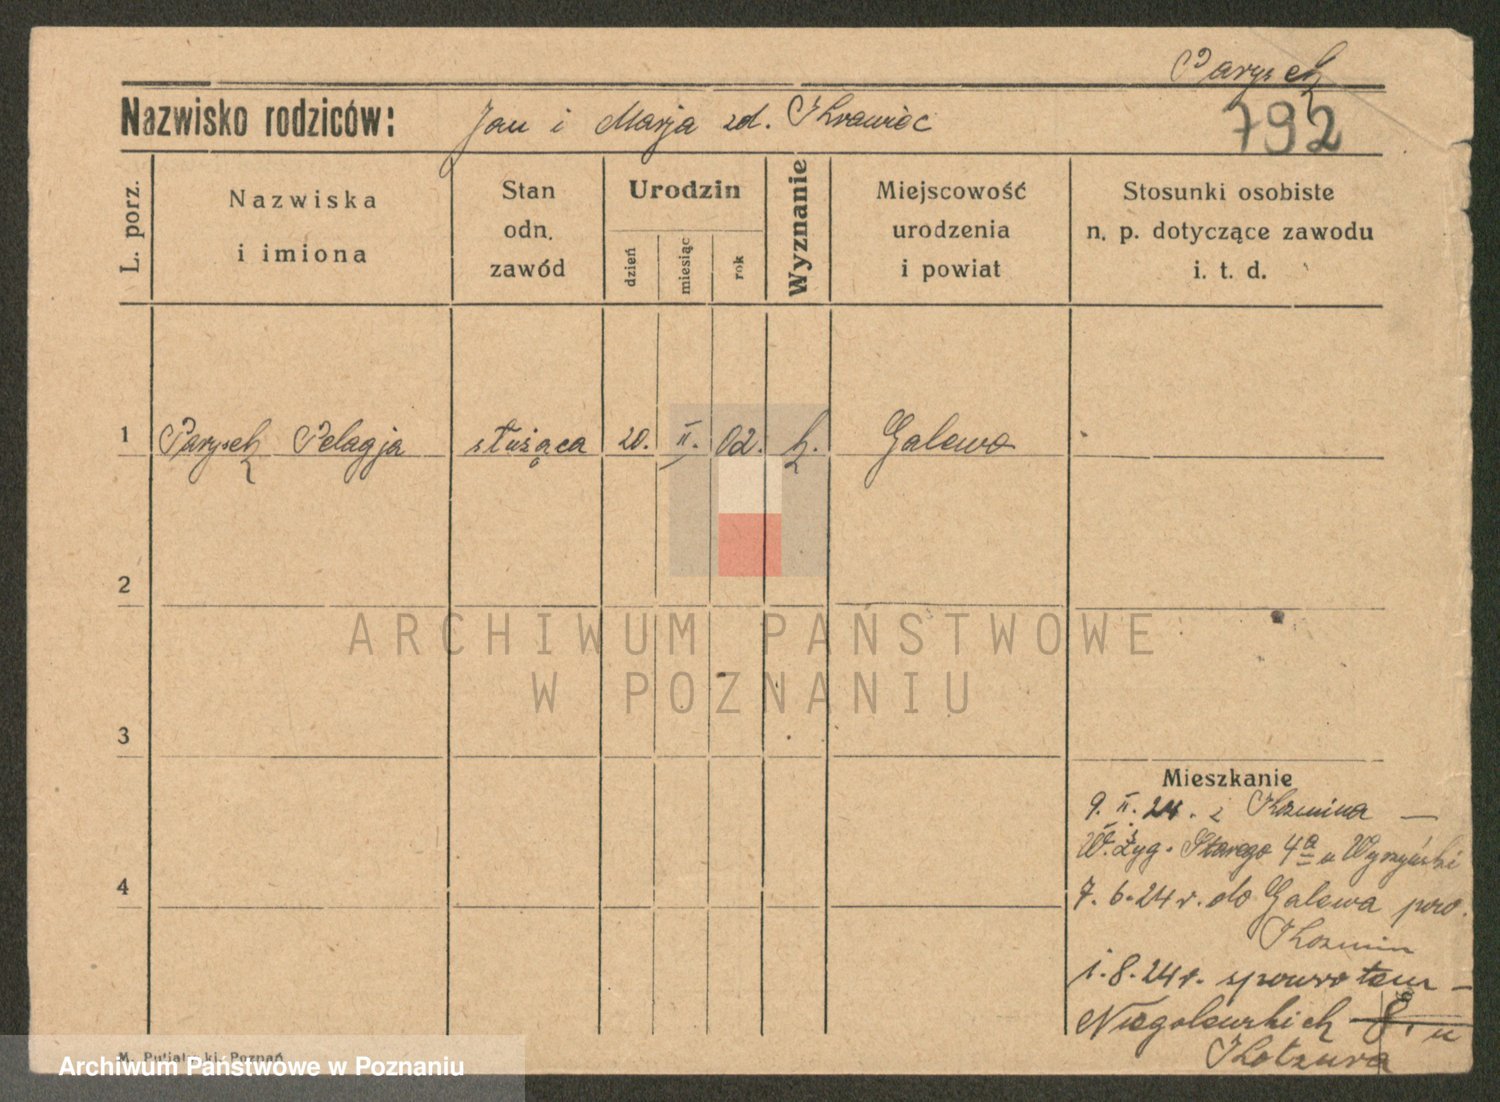 Parysek
792
Nazwisko rodziców: Jan i Marja zd. Krawiec
L. porz.
Nazwiska
i imiona
Stan
odn.
zawód
Urodzin
dzień
miesiąc
rok
Wyznanie
Miejscowość
urodzenia
i powiat
Stosunki osobiste
n. p. dotyczące zawodu
i. t. d.
1 Parysek Pelagja służąca 20. II. 02. k. Galewo
2
ARCHIWUM PAŃSTWOWE
W POZNANIU
3
Mieszkanie
9. II. 24. z Kozmina —
W. Zyg. Starego 4a u Wyrzyński
4
7. 6. 24 r. do Galewa pow.
Kozmin
1. 8. 24 r. spowrotem —
Niegolewskich 8, u
Kotzura
M. Putiatycki, Poznań
Archiwum Państwowe w Poznaniu